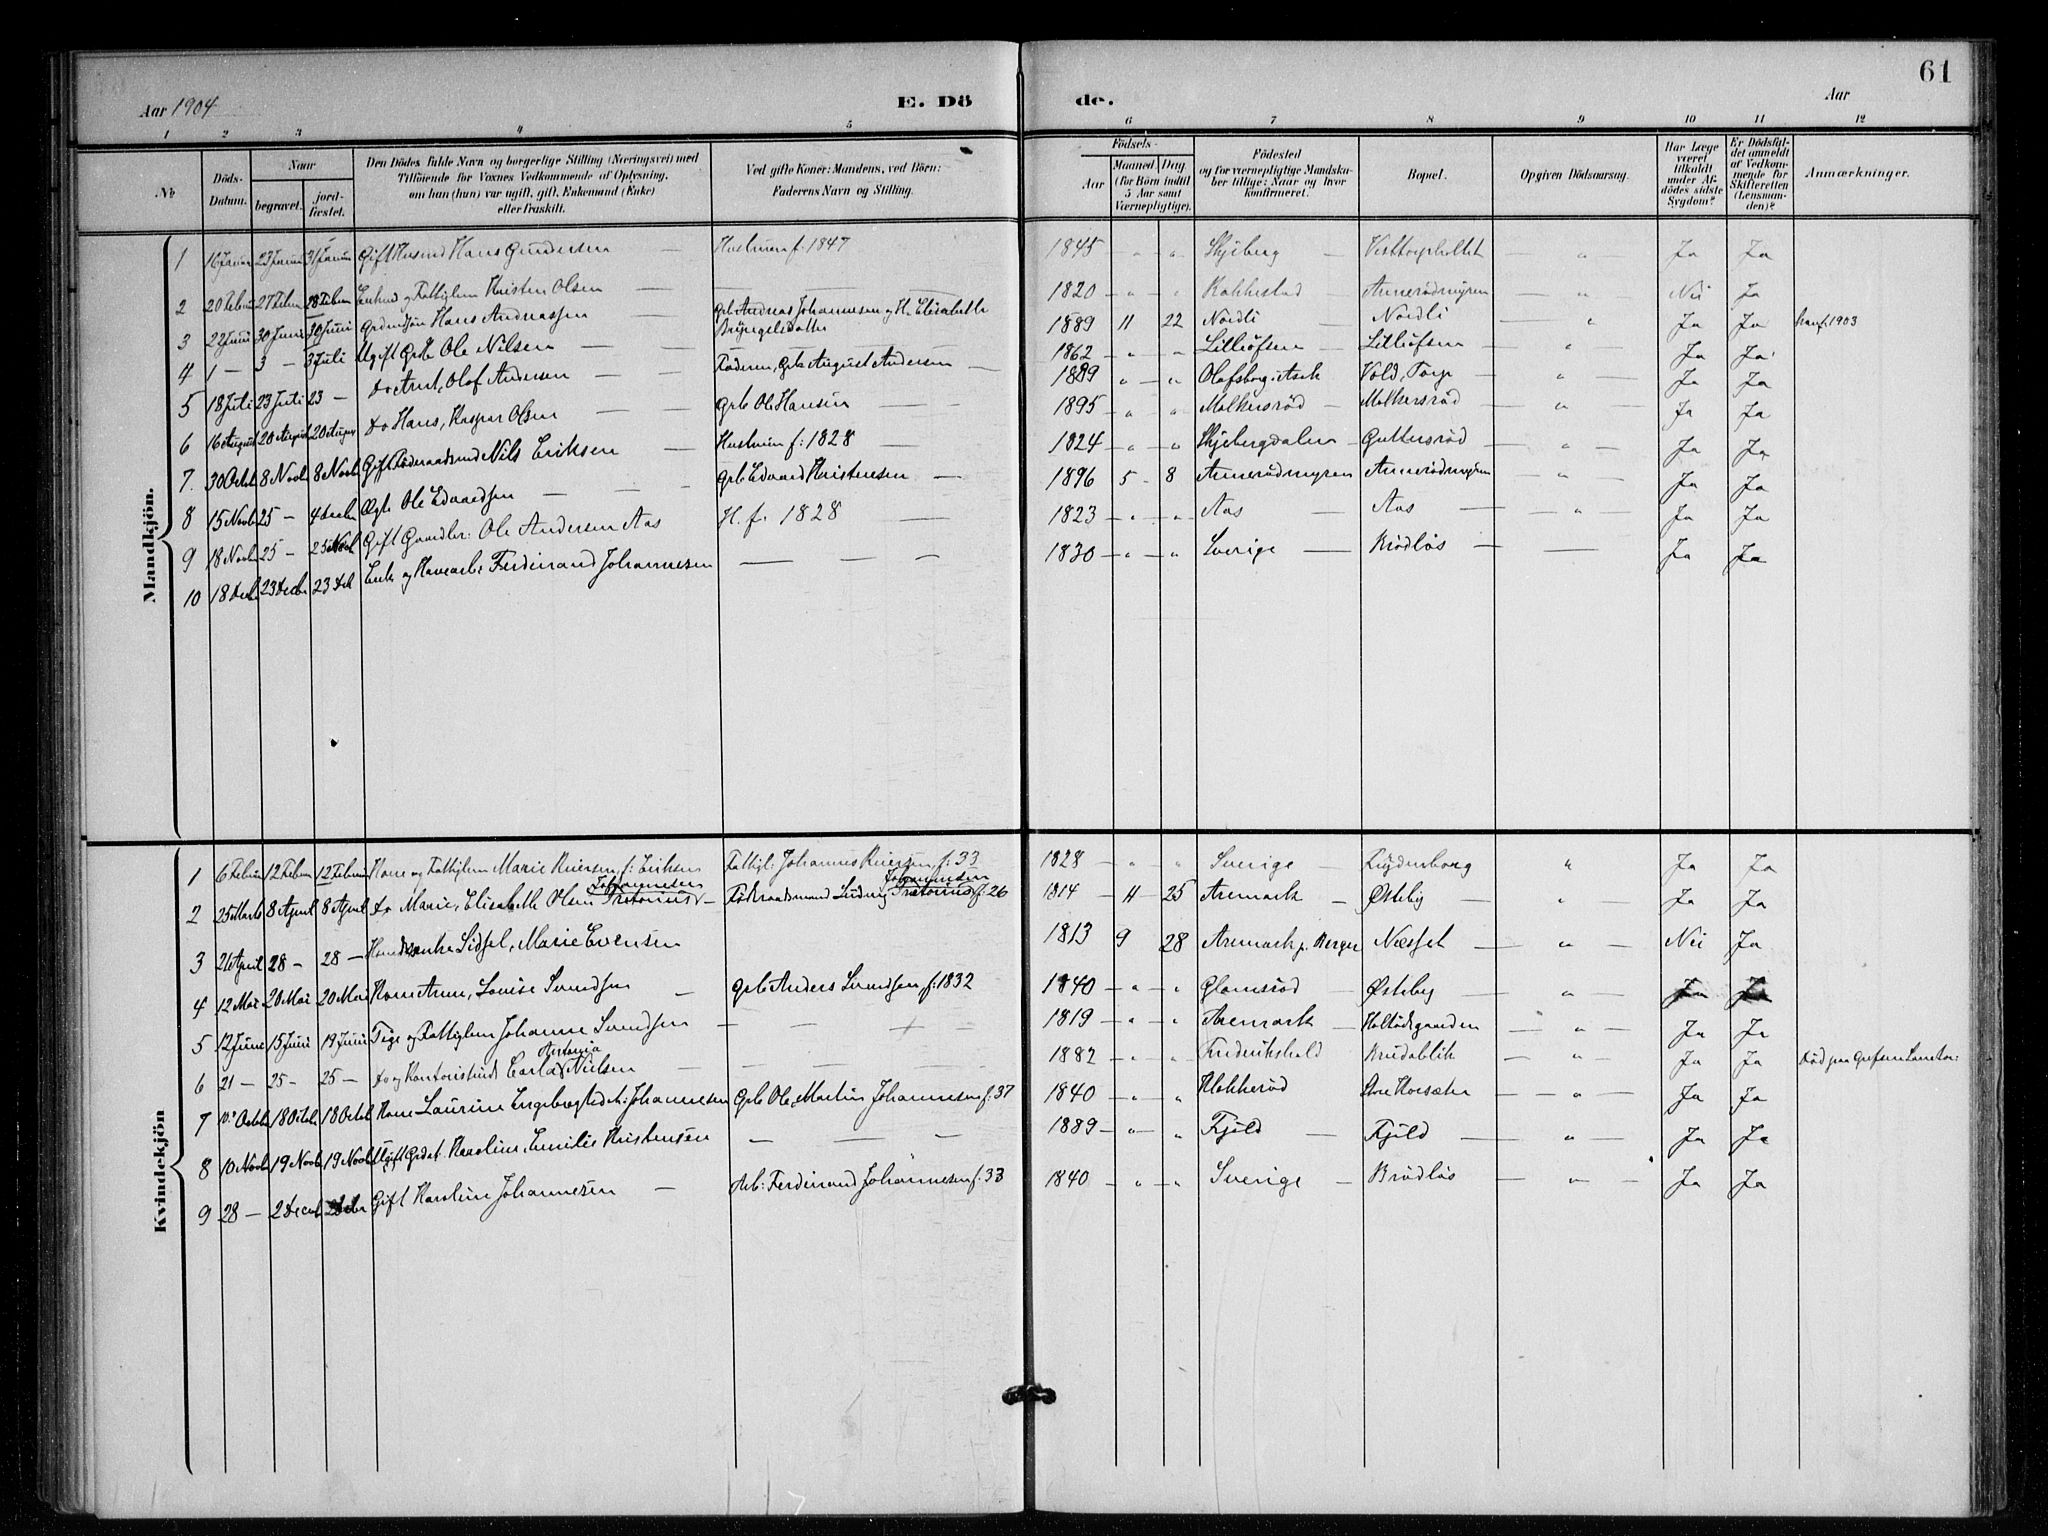 Aar 1904
E. Dö
de.
Aar
61
1 2 3 4 5 6 7 8 9 10 11 12
№
Döds-Datum.
Naar
begravet.
jord-fæstet.
Den Dödes fulde Navn og borgerlige Stilling (Næringsvei) med Tilföiende for Voxnes Vedkommende af Oplysning, om han (hun) var ugift, gift, Enkemand (Enke) eller fraskilt.
Ved gifte Koner: Mandens, ved Börn: Faderens Navn og Stilling.
Födsels-
Aar
Maaned Dag
(for Börn indtil 5 Aar samt Værnepligtige).
Födested og for værnepligtige Mandskaber tillige: Naar og hvor konfirmeret.
Bopæl.
Opgiven Dödsaarsag.
Har Læge været tilkaldt under Afdödes sidste Sygdom?
Er Dödsfaldet anmeldt af Vedkommende for Skifteretten (Lensmanden)?
Anmærkninger.
Mandkjön.
1 16 Januar 23 Januar 31 Januar Gift Husmd Hans Gundersen — Hustruen f. 1847 1845 " " Skjeberg — Visttorpholtet " Ja Ja
2 20 Febru 27 Febru 28 Febru Enkmd og Fattiglem Kristen Olsen — 1820 — " — " Rakkestad — Annerödmyren — " — Nei Ja
3 22 Juni 30 Juni 30 Juni Grdmdsön Hans Andreassen — Grb Andreas Johannesen og H. Elisabeth Bryngelsdatter 1889 11 22 Nordli — Nordli — " — Ja Ja konf. 1903
4 1 — 3 — 3 Juli Ugift Grb Ole Nilsen — — 1862 — " — " Lilliöfsen — Lilliöfsen — " — Ja Ja
5 18 Juli 23 Juli 23 — do Arnt, Olof Andersen — Faderen, Grb August Andersen — 1889 " — " Olafsborg i Asak Vold, Torp — " — Ja Ja
6 16 August 20 August 20 August do Hans, Kaspar Olsen — Grb Ole Hansen — 1895 — " " Molkersröd — Molkersröd — " — Ja Ja
7. 30 Octob 8 Novb 8 Novb Gift Föderaadsmd Nils Eriksen — Hustruen f: 1828 — 1824 — " — " Skjebergdalen — Guttersröd — " — Ja Ja
8 15 Novb 25 — 4 Decbr Ægte Ole Edvardsen — Grb Edvard Kristensen — 1896 5 - 8 Annerödmyren Annerödmyren — " — Ja Ja
9 18 Novb 25 — 25 Novb Gift Gaardbr: Ole Andersen Aas H. f. 1828 — 1823 — " — " Aas — Aas — " — Ja Ja
10 18 Decbr 23 Decbr 23 Dec Enkm og Havearb: Ferdinand Johannesen — 1830 — " — " Sverige — Brödlös — Ja Ja
Kvindekjön
1 6 Februar 12 Febru 12 Februar Kone og Fattiglem Marie Reiersen f: Eriksen Fattigl: Johannes Reiersen, f: 33 1828 — " " Sverige — Frydenborg " Ja Ja
2 25 Marts 8 April 8 April do Marie, Elisabeth Olsen Johannesen Prætorius — Föderaadsmand Ludvig Johannesen Prætorius f. 26 1814 — 11 — 25 Aremark — Østeby — " — Ja Ja
3 26 April 28 — 28 — Sidsel, Marie Evensen 1813 9 28 Aremark p. Berger Næsset — " — Nei Ja
4 12 Mai 20 Mai 20 Mai Kone Anne, Louise Svendsen — Grb Anders Svendsen, f: 1832 1840 — " — " Glomsröd — Østeby — " — Ja Ja
5 12 June 15 Juni 19 Juni Pige og Fattiglem Johanne Svendsen — — + — 1819 — " — " Aremark — Holtödegaarden — " — Ja Ja
6 21 — 25 — 25 — do og Kontoristinde Carla Antonia Nielsen — 1882 " " Fredrikshald Brudablik — " — Ja Ja Död paa Grefsen Sanator:
7 10. Octob 18 Octob 18 Octob Kone Laurine Engebregtsd. Johannesen Grb Ole, Martin Johannesen f: 37 1840 — " — " Klokkeröd Store Korsæter — " — Ja Ja
8 10 Novb 19 Novb 19 Novb Ugift Grdat Karoline, Emilie Kristensen — 1889 — " — " Fjeld — Fjeld — " — Ja Ja
9 28 — 2 Decbr 2 Decbr Gift Karoline Johannesen — Arb: Ferdinand Johannesen f. 33 1840 — " — " Sverige — Brödlös — " — Ja Ja